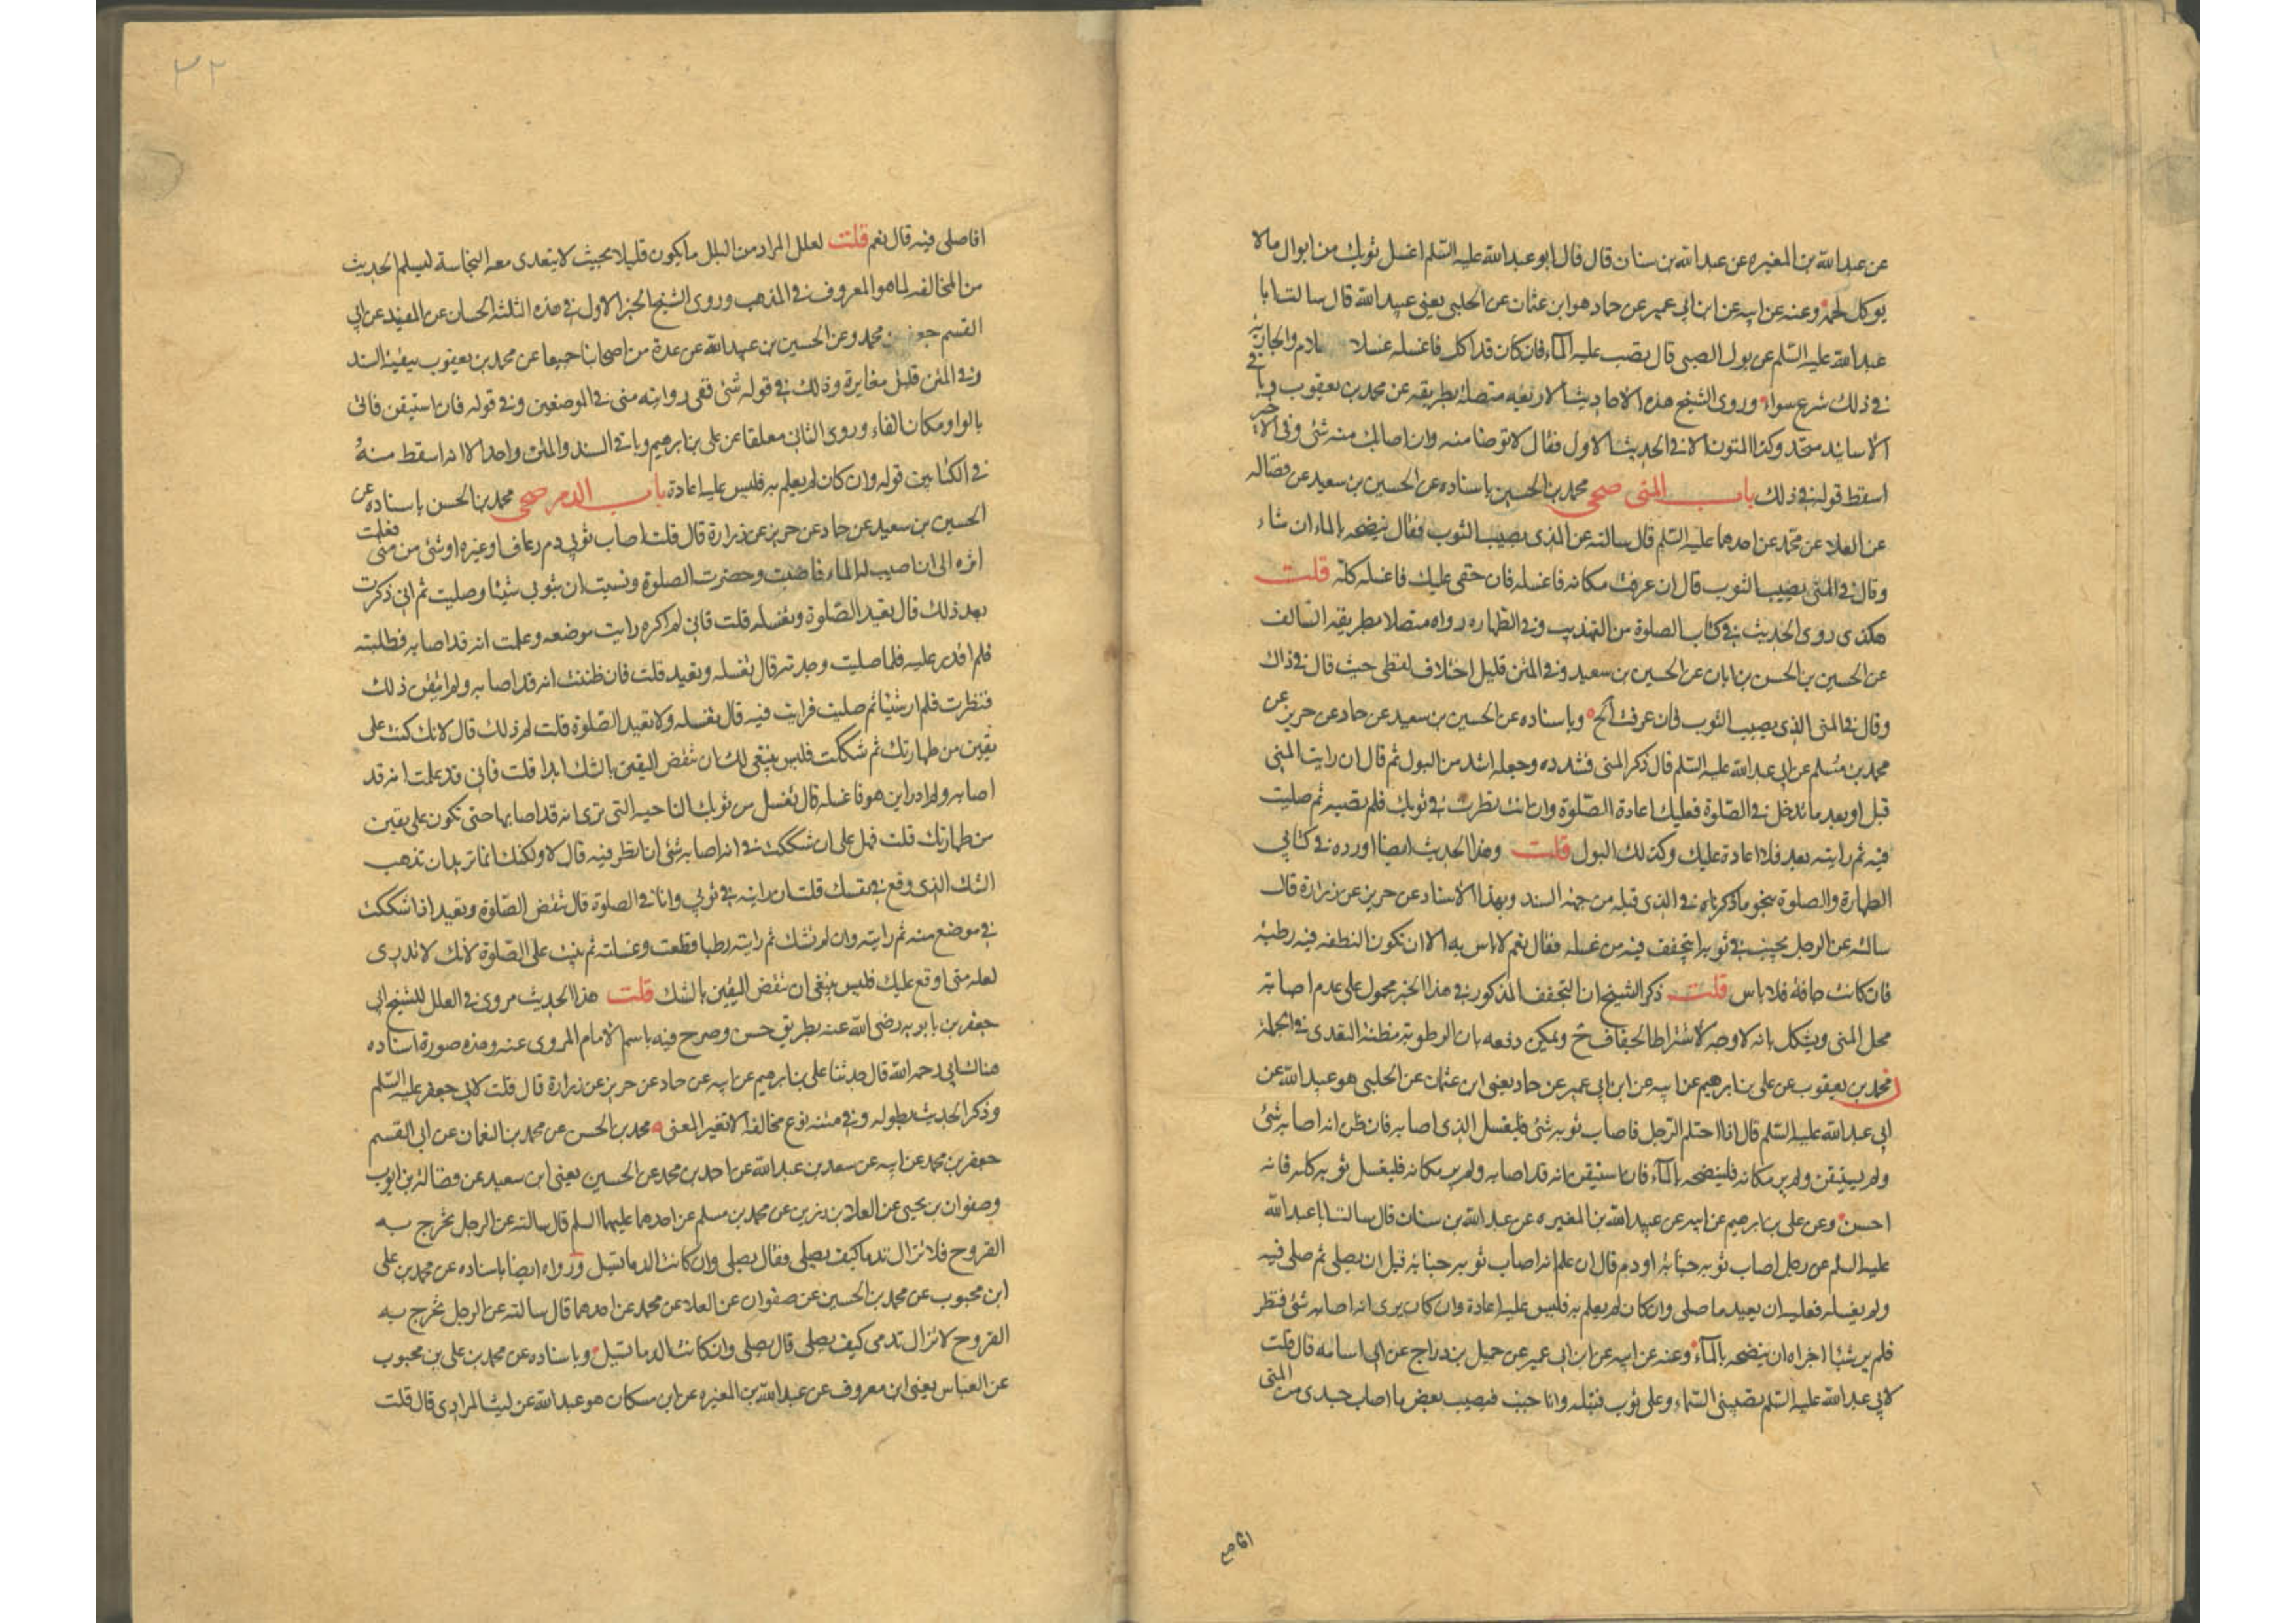 عن عبد الله بن المغيره عن عبد الله بن سنان قال قال ابو عبد الله عليه السّلم اغسل ثوبك من ابوال مالا
يوكل لحمه وعنه عن ابيه عن ابن ابي عمير عن حماد هو ابن عثمان عن الحلبي يعنى عبيد الله قال سالت ابا
عبد الله عليه السّلم عن بول الصبى قال تصب عليه المآء فان كان قد اكل فاغسله غسلا والجاريه
فى ذلك شرع سواء وروى الشيخ هذه الاحاديث الاربعه متصلة بطريقه عن محمد بن يعقوب وباقى
الاسانيد متحد وكذا المتون الا فى الحديث الاول فقال لا توضا منه وان اصابك منه شئ وفى الاخر
اسقط قوله فى ذلك باب المنى صحى محمد بن الحسين باسناده عن الحسين بن سعيد عن فضاله
عن العلا عن محمد عن احدهما عليه السّلم قال سالته عن المذى يصيب الثوب فقال ينضحه بالماء ان شاء
وقال فى المنى يصيب الثوب قال ان عرفت مكانه فاغسله فان خفى عليك فاغسله كلّه قلت
هكذى روى الحديث فى كتاب الصلوة من التهذيب وفى الطهاره رواه متصلا بطريقه السالف
عن الحسين بن الحسن بن ابان عن الحسين بن سعيد وفى المتن قليل اختلاف لفظى حيث قال فى ذاك
وقال فى المنى الذى يصيب الثوب فان عرفت الخ وباسناده عن الحسين بن سعيد عن حماد عن حريز عن
محمد بن مسلم عن ابى عبد الله عليه السّلم قال ذكر المنى فشدده وجعله اشد من البول ثم قال ان رايت المنى
قبل او بعد ما تدخل فى الصّلوة فعليك اعادة الصّلوة وان انت نظرت فى ثوبك فلم تصبه ثم صليت
فيه ثم رايته بعد فلا اعادة عليك وكذلك البول قلت وهذا الحديث ايضا اورده فى كتابي
الطهارة والصلوة بنحو ما ذكرناه فى الذى قبله من جهة السند وبهذا الاسناد عن حريز عن زرارة قال
سالته عن الرجل يجنب فى ثوبه ايتجفف فيه من غسله فقال نعم لا باس به الا ان تكون النطفه فيه رطبة
فان كانت جافة فلا باس قلت ذكر الشيخ ان التجفف المذكور فى هذا الخبر محمول على عدم اصابة
محل المنى ويشكل بانه لا وجه لاشتراط الجفاف ح ويمكن دفعه بان الرطوبة مظنة التعدى فى الجملة
محمد بن يعقوب عن على بن ابرهيم عن ابيه عن ابن ابى عمير عن حماد يعنى ابن عثمان عن الحلبى هو عبيد الله عن
ابى عبد الله عليه السّلم قال اذا احتلم الرّجل فاصاب ثوبه شئ فليغسل الذى اصابه فان ظن انه اصابه شئ
ولم يستيقن ولم ير مكانه فلينضحه بالمآء فان استيقن انه قد اصابه ولم ير مكانه فليغسل ثوبه كله فانه
احسن وعن على بن ابرهيم عن ابيه عن عبد الله بن المغيره عن عبد الله بن سنان قال سالت ابا عبد الله
عليه السلم عن رجل اصاب ثوبه جنابة او دم قال ان علم انه اصاب ثوبه جنابة قبل ان يصلى ثم صلى فيه
ولم يغسله فعليه ان يعيد ما صلى وان كان لم يعلم به فليس عليه اعادة وان كان يرى انه اصابه شئ فنظر
فلم ير شيئا اجزاه ان ينضحه بالمآء وعنه عن ابيه عن ابن ابى عمير عن جميل بن دراج عن ابى اسامه قال قلت
لابى عبد الله عليه السّلم تصيبنى السّماء وعلى ثوب فتبله وانا جنب فيصيب بعض ما اصاب جسدى من المنى
٣٢
افاصلى فيه قال نعم قلت لعل المراد من البلل ما يكون قليلا بحيث لا يتعدى معه النجاسة ليسلم الحديث
من المخالفه لما هو المعروف فى المذهب وروى الشيخ الخبر الاول فى هذه الثلثة الحسان عن المفيد عن ابى
القسم جعفر بن محمد وعن الحسين بن عبيد الله عن عدة من اصحابنا جميعا عن محمد بن يعقوب ببقية السند
وفى المتن قليل مغايرة وذلك فى قوله شئ ففى روايته منى فى الموضعين وفى قوله فان استيقن فاتى
بالواو مكان الفاء وروى الثانى معلقا عن على بن ابرهيم وباقى السند والمتن واحد الا انه اسقط منه
فى الكتابين قوله وان كان لم يعلم به فليس عليه اعادة باب الدم صحى محمد بن الحسن باسناده عن
الحسين بن سعيد عن حماد عن حريز عن زرارة قال قلت اصاب ثوبى دم رعاف او غيره او شئ من منى فعلمت
اثره الى ان اصيب له الماء فاصبت وحضرت الصلوة ونسيت ان بثوبى شيئا وصليت ثم انى ذكرت
بعد ذلك قال تعيد الصّلوة وتغسله قلت فانى لم اكن رايت موضعه وعلمت انه قد اصابه فطلبته
فلم اقدر عليه فلما صليت وجدته قال تغسله وتعيد قلت فان ظننت انه قد اصابه ولم اتيقن ذلك
فنظرت فلم ار شيئا ثم صليت فرايت فيه قال تغسله ولا تعيد الصّلوة قلت لم ذلك قال لانك كنت على
يقين من طهارتك ثم شككت فليس ينبغى لك ان تنقض اليقين بالشك ابدا قلت فانى قد علمت انه قد
اصابه ولم ادر اين هو فاغسله قال تغسل من ثوبك الناحيه التى ترى انه قد اصابها حتى تكون على يقين
من طهارتك قلت فهل على ان شككت فى انه اصابه شئ ان انظر فيه قال لا ولكنك انما تريد ان تذهب
الشك الذى وقع فى نفسك قلت ان رايته فى ثوبى وانا فى الصلوة قال تنقض الصّلوة وتعيد اذا شككت
فى موضع منه ثم رايته وان لم تشك ثم رايته رطبا قطعت وغسلته ثم بنيت على الصّلوة لانك لا تدرى
لعله شئ اوقع عليك فليس ينبغى ان تنقض اليقين بالشك قلت هذا الحديث مروى فى العلل للشيخ ابى
جعفر بن بابويه رضى الله عنه بطريق حسن وصرح فيه باسم الامام المروى عنه وهذه صورة اسناده
هناك ابى رحمه الله قال حدثنا على بن ابرهيم عن ابيه عن حماد عن حريز عن زرارة قال قلت لابى جعفر عليه السّلم
وذكر الحديث بطوله وفى متنه انوع مخالفة لا تغير المعنى محمد بن الحسن عن محمد بن النعمان عن ابى القسم
جعفر بن محمد عن ابيه عن سعد بن عبد الله عن احمد بن محمد عن الحسين يعنى ابن سعيد عن فضالة بن ايوب
وصفوان بن يحيى عن العلا بن رزين عن محمد بن مسلم عن احدهما عليهما السلم قال سالته عن الرجل تخرج به
القروح فلا تزال تدما كيف يصلى فقال يصلى وان كانت الدما تسيل ورواه ايضا باسناده عن محمد بن على
ابن محبوب عن محمد بن الحسين عن صفوان عن العلا عن محمد عن احدهما قال سالته عن الرجل تخرج به
القروح لا تزال تدمى كيف يصلى قال يصلى وان كانت الدما تسيل وباسناده عن محمد بن على بن محبوب
عن العباس يعنى ابن معروف عن عبد الله بن المغيره عن ابن مسكان هو عبد الله عن ليث المرادى قال قلت